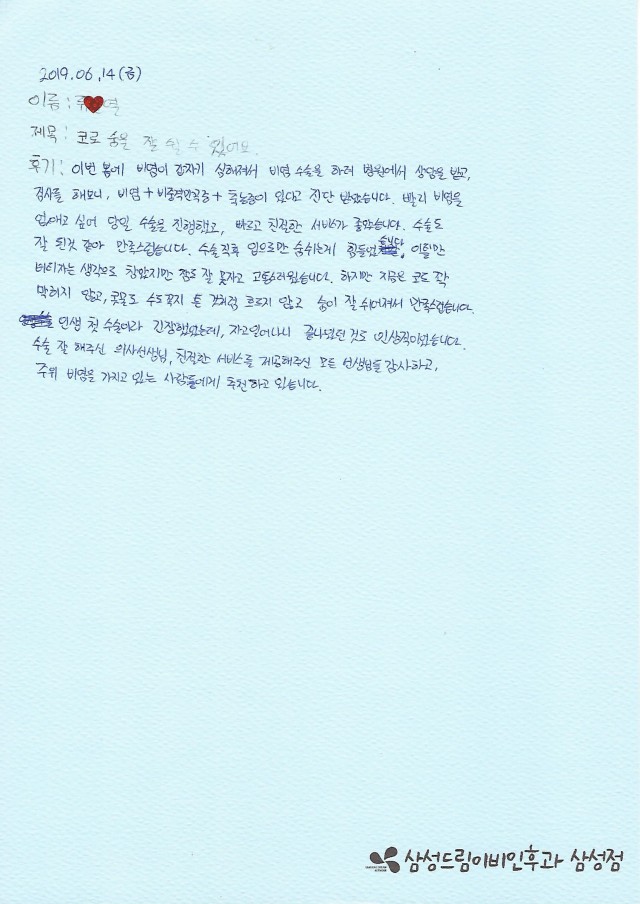 2019.06.14(금)
이름 : 주열
제목 : 코로 숨을 잘 쉴 수 있어요
후기 : 이번 봄에 비염이 갑자기 심해져서 비염 수술을 하러 병원에서 상담을 받고,
검사를 해보니, 비염 + 비중격만곡증 + 축농증이 있다고 진단 받았습니다. 빨리 비염을
없애고 싶어 당일 수술을 진행했고, 빠르고 친절한 서비스가 좋았습니다. 수술도
잘 된것 같아 만족스럽습니다. 수술직후 입으로만 숨쉬는게 힘들었습니다. 이틀만
버티자는 생각으로 참았지만 잠도 잘 못자고 고통스러웠습니다. 하지만 지금은 코도 꽉
막히지 않고, 콧물도 수도꼭지 튼 것처럼 흐르지 않고 숨이 잘 쉬어져서 만족스럽습니다.
인생 첫 수술이라 긴장했었는데, 자고일어나니 끝나있던 것도 인상적이었습니다.
수술 잘 해주신 의사선생님, 친절한 서비스를 제공해주신 모든 선생님들 감사하고,
주위 비염을 가지고 있는 사람들에게 추천하고 있습니다.
삼성드림이비인후과 삼성점